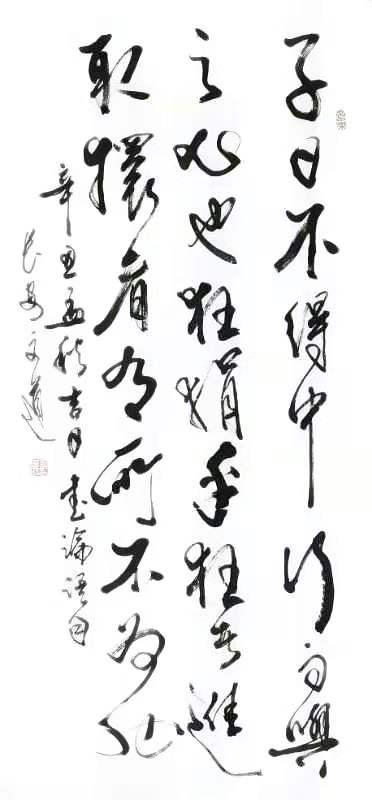 子曰不得中行而與
之必也狂狷乎狂者進
取獧者有所不為也
辛丑孟秋吉日書論語句
長安文道